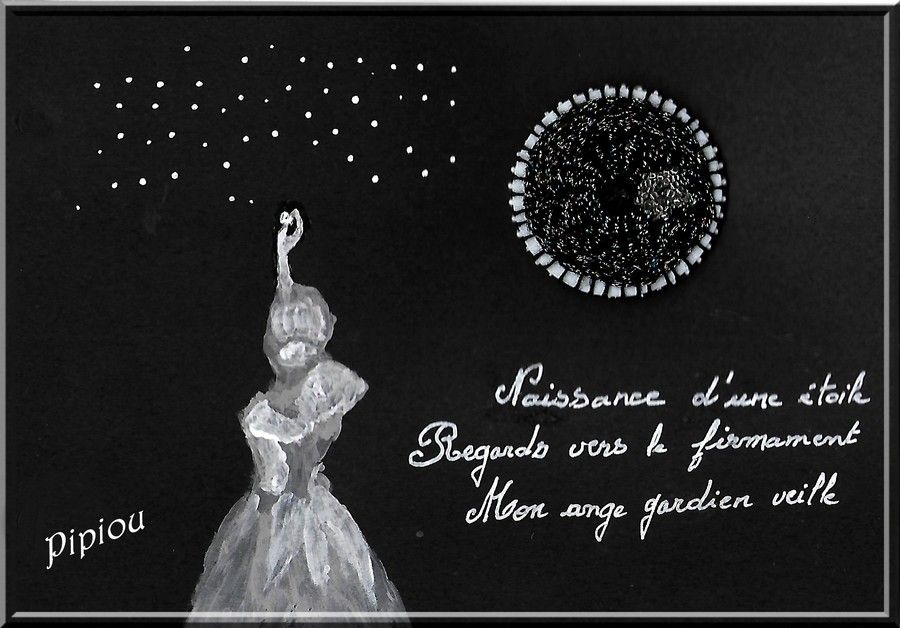 Naissance d'une étoile
Regards vers le firmament
Mon ange gardien veille
Pipiou